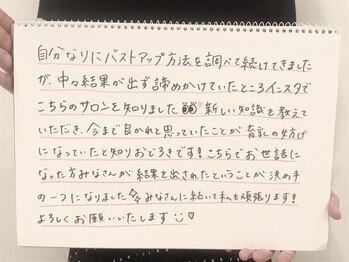 自分なりにバストアップ方法を調べて続けてきました
が、中々結果が出ず諦めかけていたところインスタで
こちらのサロンを知りました👀 新しい知識を教えて
いただき、今まで良かれと思っていたことが育乳の妨げ
になっていたと知りおどろきです！こちらでお世話に
なった方みなさんが結果を出されたということが決め手
の一つになりました✨みなさんに続いて私も頑張ります！
よろしくお願いいたします☺♡